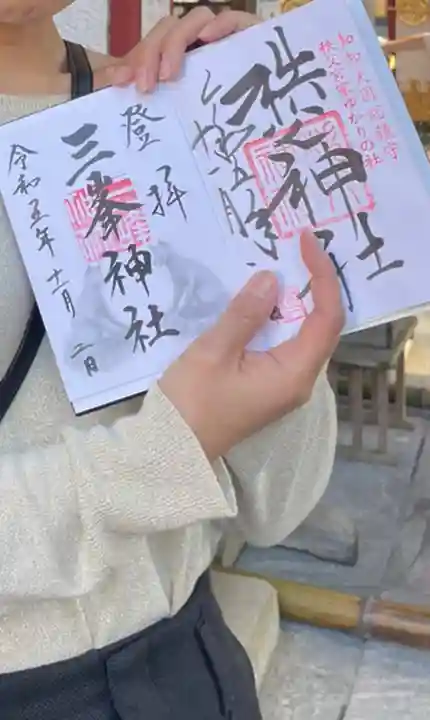 知知夫国総鎮守
秩父宮家ゆかりの社
秩父神社
登拝
三峯神社
令和五年十一月二日